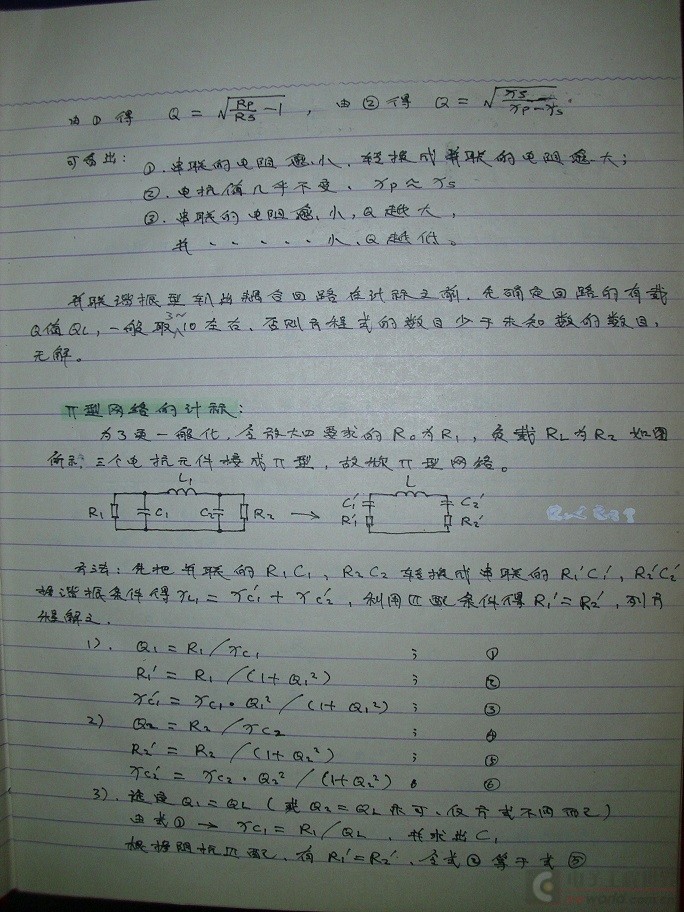 由①得 Q = √(Rp/Rs − 1) , 由②得 Q = √(xs/(xp−xs)) .
可看出: ①. 串联的电阻愈小、转换成并联的电阻愈大;
②. 电抗值几乎不变、xp ≈ xs
③. 串联的电阻愈小, Q越大,
并 · · · · · 小, Q越低。
并联谐振型输出耦合回路在计算之前, 先确定回路的有载
Q值QL, 一般取3~10左右, 否则方程式的数目少于未知数的数目,
无解。
π型网络的计算:
为了更一般化, 令放大四要求的R。为R1, 负载RL为R2 如图
所示, 三个电抗元件接成π型, 故称π型网络。
L1
R1 C1 C2 R2 →
L
C1′ R1′ C2′ R2′
方法: 先把并联的R1C1, R2C2 转换成串联的R1′C1′, R2′C2′
按谐振条件得xL1 = xc1′ + xc2′, 利用匹配条件得R1′=R2′, 列方
程解之.
1). Q1 = R1/xc1 ; ①
R1′ = R1/(1+Q1²) ; ②
xc1′ = xc1·Q1²/(1+Q1²) ; ③
2) Q2 = R2/xc2 ; ④
R2′ = R2/(1+Q2²) ; ⑤
xc2′ = xc2·Q2²/(1+Q2²) 。 ⑥
3). 选定Q1=QL (或Q2=QL亦可、仅方式不同而已)
由式① → xc1 = R1/QL , 并求出C1
根据阻抗匹配、有R1′=R2′、令式②等于式⑤